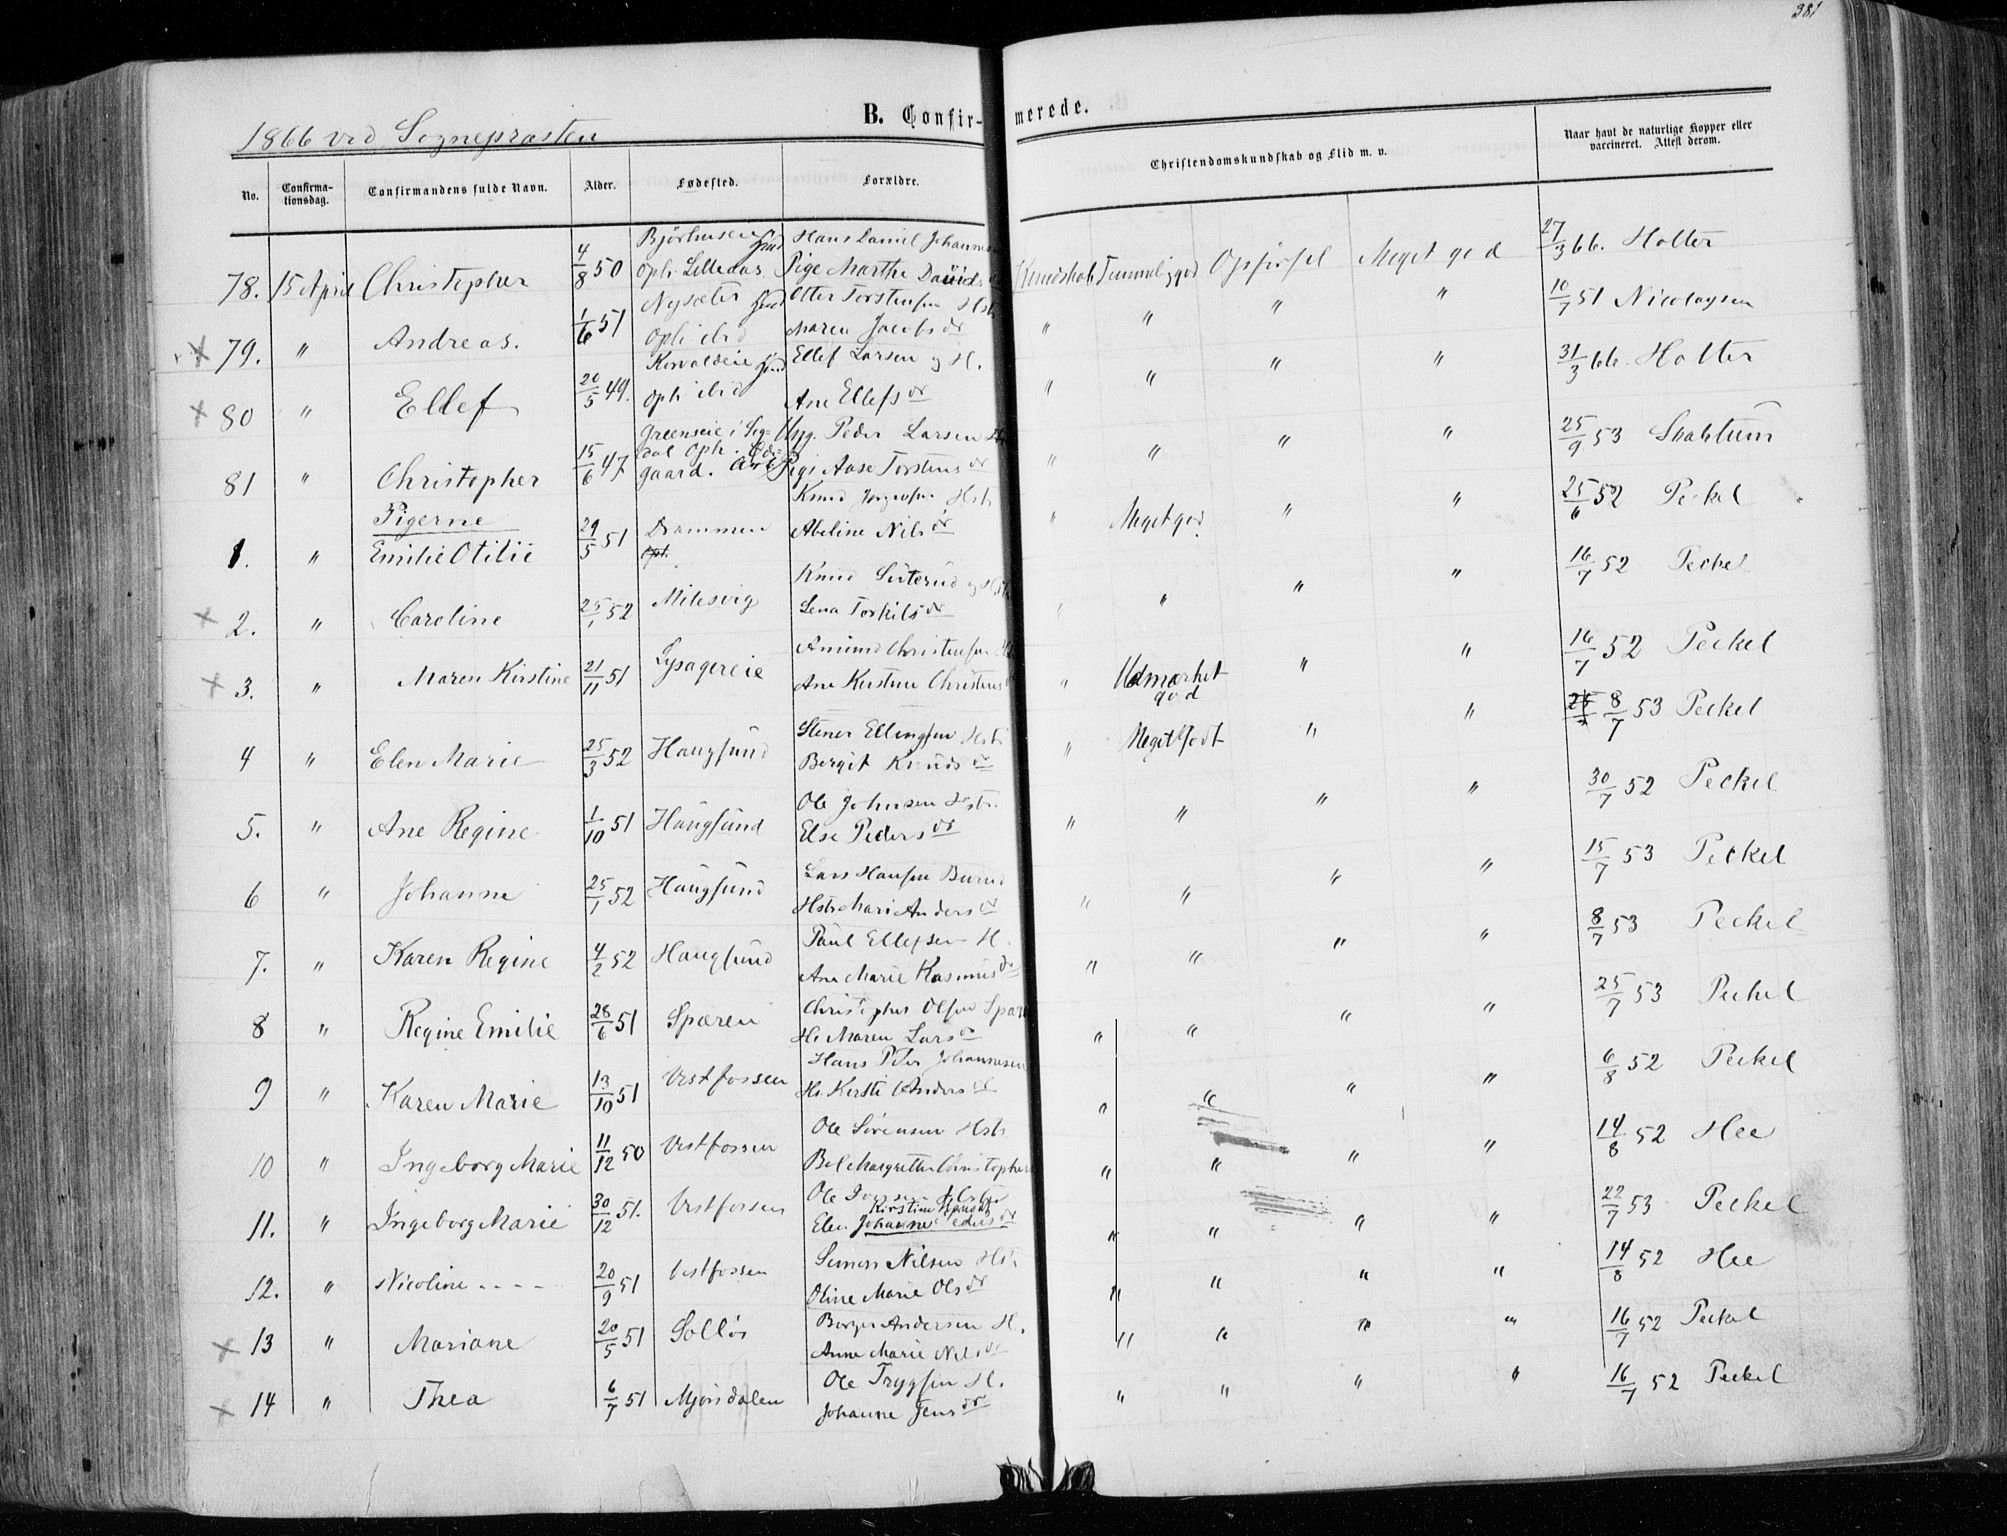 381
1866 ved Sognepræsten
B. Confir-merede.
No. Confirmationsdag. Confirmandens fulde Navn. Alder. Fødested. Forældre. Christendomskundskab og Flid m. v. Naar havt de naturlige Kopper eller vaccineret. Attest derom.
78. 15 April Christopher 4/8 50 Oph. Hans Daniel Pige Marthe Kundskab Temmelig god Opførsel Meget god 27/3 66. Holter
79. " Andreas. 1/6 51 Nysæter Oph ibid Otter Torstensen Hstr Maren Jacobsdr " " " " 10/7 51 Nicolaysen
80 " Ellef 20/5 49. Oph ibid Ellef Larsen og H. Ane Ellefsdr " " " " 31/3 66. Holter
81 " Christopher 15/6 47 Greenseie i Sigdal Oph. Ugg. Peder Larsen Pige Aase Torstensdr " " " " 25/9 53
Pigerne
1. " Emilie Otilie 29/5 51 Drammen Oph. Knud Hstr Abeline Nilsdr " Meget god. " " 25/6 52 Peckel
2. " Caroline 25/1 52 Milesvig Knud og Hstr Lena Torkilsdr " " " " 16/7 52 Peckel
3. " Maren Kirstine 21/11 51 Lysagereie Amund Christensen Ane Kirstine Christens " Udmærket god " " 16/7 52 Peckel
4 " Elen Marie 25/3 52 Haugsund Stener Ellingsen Hstr Bergit Knudsdr " Meget godt " " 8/7 53 Peckel
5. " Ane Regine 1/10 51 Haugsund Ole Johnsen Hstr. Else Pedersdr " " " " 30/7 52 Peckel
6 " Johanne 25/1 52 Haugsund Lars Hansen Hstr Mari Andersdr " " " " 15/7 53 Peckel
7. " Karen Regine 4/2 52 Haugsund Paul Ellefsen H. Ane Marie Rasmusdr " " " " 8/7 53 Peckel
8 " Regine Emilie 28/6 51 Spæren Christopher Olsen H. Maren Larsdr " " " " 25/7 53 Peckel
9 " Karen Marie 13/10 51 Vestfossen Hans Peter Johannesen H. Kirsti Andersdr " " " " 6/8 52 Peckel
10 " Ingeborg Marie 11/12 50 Vestfossen Ole Sørensen Hstr Bol Margrethe Christophers " " " " 14/8 52 Hee
11. " Ingeborg Marie 30/12 51. Vestfossen Ole Iversen Kirstine Elen Johanne Pedersdr " " " " 22/7 53 Peckel
12. " Nicoline - - - - 20/9 51 Vestfossen Nilsen Hstr. Oline Marie Olsdr " " " " 14/8 52 Hee
13 " Mariane 20/5 51 Solløs Borger Andersen H. Anne Marie Nilsdr " " " " 16/7 52 Peckel
14 " Thea 6/7 51 Mjøndalen Ole Trygsen H. Johanne Jensdr " " " " 16/7 52 Peckel